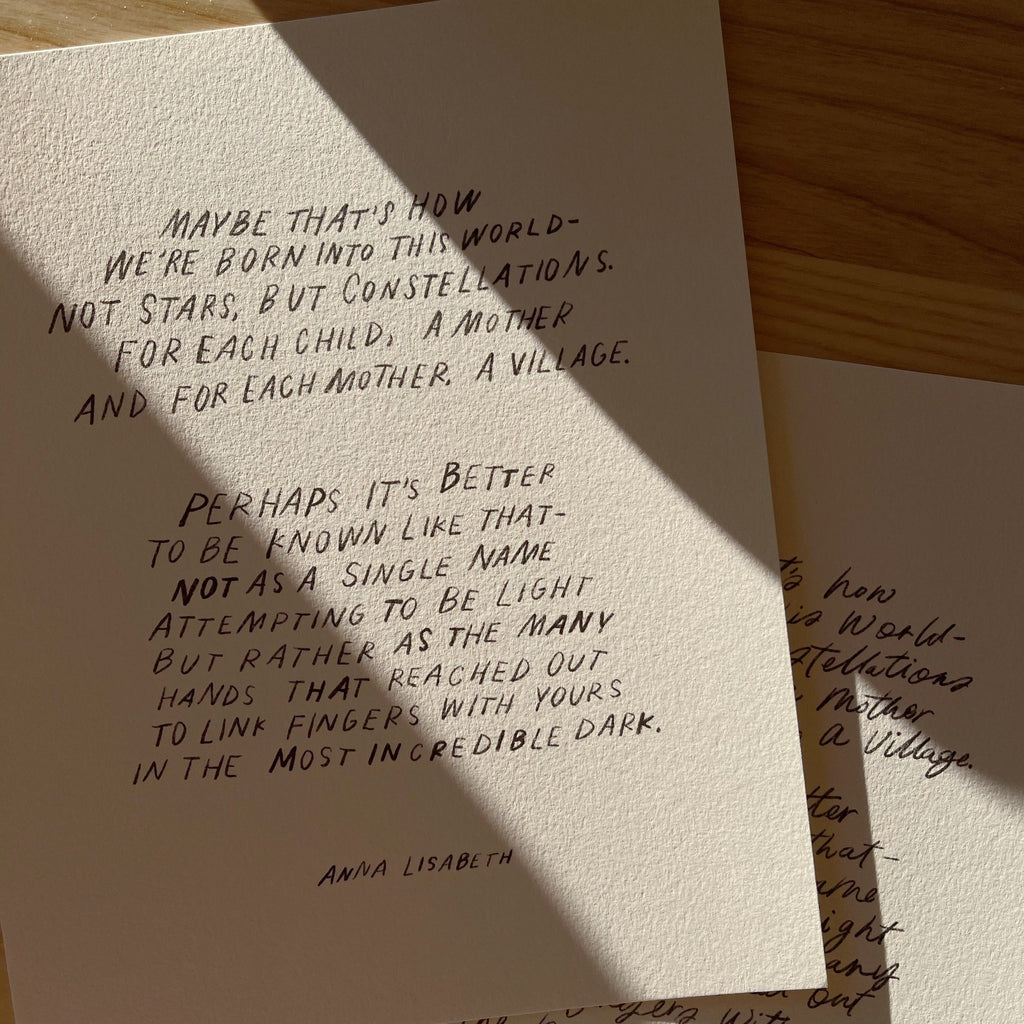 MAYBE THAT'S HOW
WE'RE BORN INTO THIS WORLD-
NOT STARS, BUT CONSTELLATIONS.
FOR EACH CHILD, A MOTHER
AND FOR EACH MOTHER, A VILLAGE.
PERHAPS IT'S BETTER
TO BE KNOWN LIKE THAT-
NOT AS A SINGLE NAME
ATTEMPTING TO BE LIGHT
BUT RATHER AS THE MANY
HANDS THAT REACHED OUT
TO LINK FINGERS WITH YOURS
IN THE MOST INCREDIBLE DARK.
ANNA LISABETH
t's how
is world-
stellations
mother
a village.
tter
that-
ame
ight
any
out
ngers with